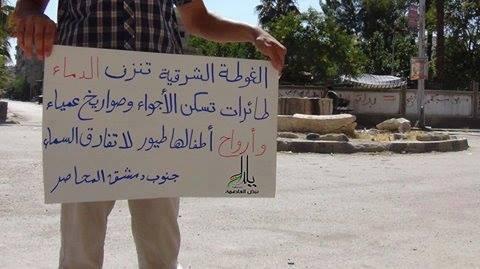 الغوطة الشرقية تنزف الدماء
طائرات تسكن الأجواء وصواريخ عمياء
وأرواح أطفالها طيور لا تفارق السماء
جنوب دمشق المحاصر
يلدا
نبض العاصمة